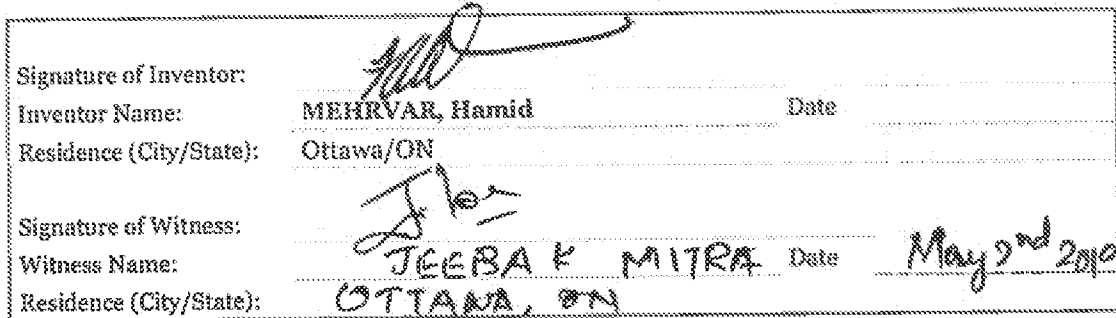 Signature of Inventor:
Inventor Name: MEHRVAR, Hamid Date
Residence (City/State): Ottawa/ON
Signature of Witness:
Witness Name: JEEBAK MITRA Date May 2nd
Residence (City/State): OTTAWA, ON